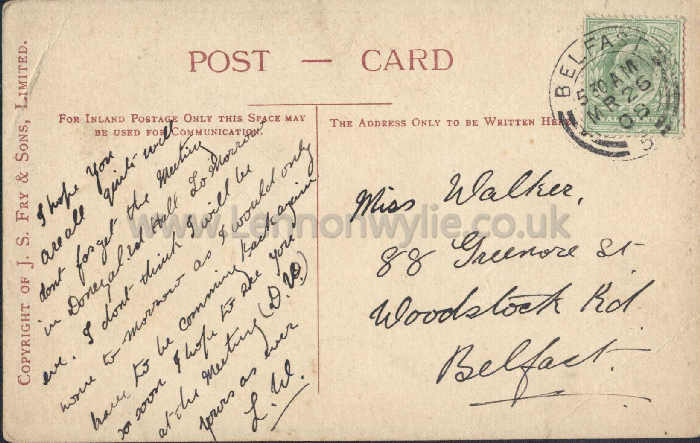 POST — CARD
FOR INLAND POSTAGE ONLY THIS SPACE MAY
BE USED FOR COMMUNICATION.
THE ADDRESS ONLY TO BE WRITTEN HERE.
COPYRIGHT OF J. S. FRY & SONS, LIMITED.
BELFAST
5 30 AM
MR 26
09
5
HALFPENNY
I hope you
are all quite well
dont forget the Meeting
in Donegal Rd Hall To Morrow
eve. I dont think I will be
home to morrow as I would only
have to be comming back again
so soon I hope to see you
at the Meeting (D.V.)
yours as ever
L. W.
Miss Walker,
88 Greenore St
Woodstock Rd
Belfast.
www.Lennonwylie.co.uk